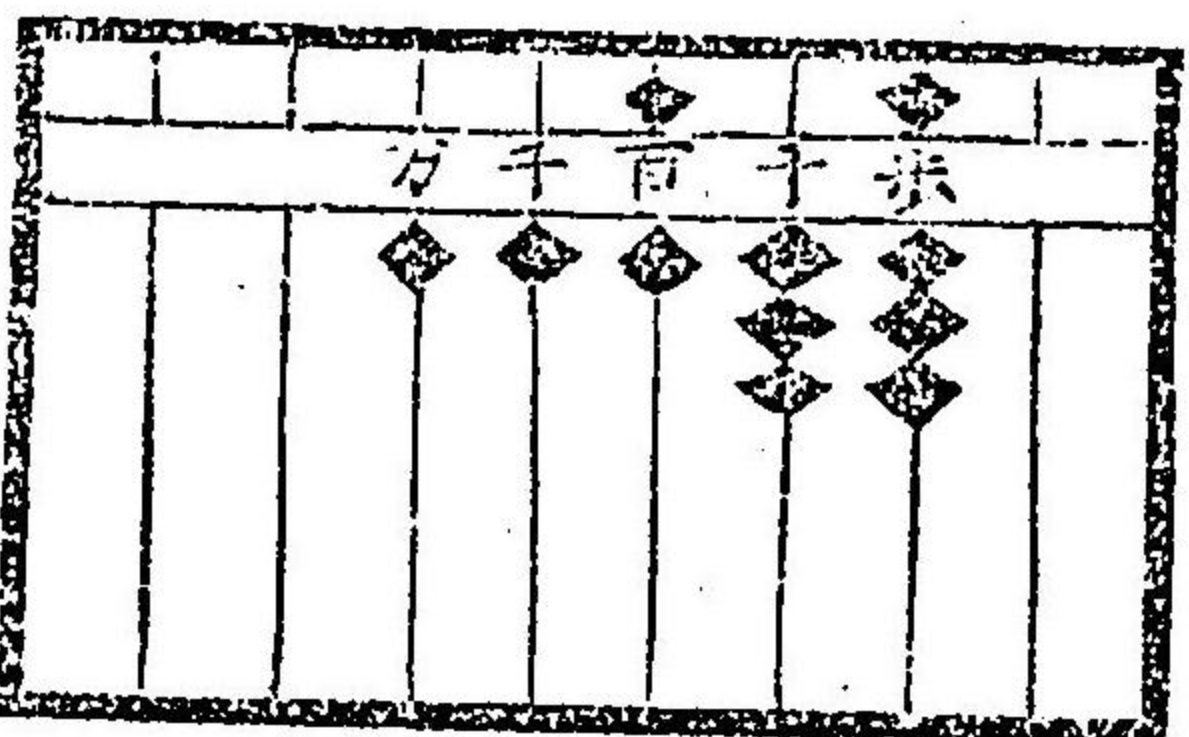 万千百十